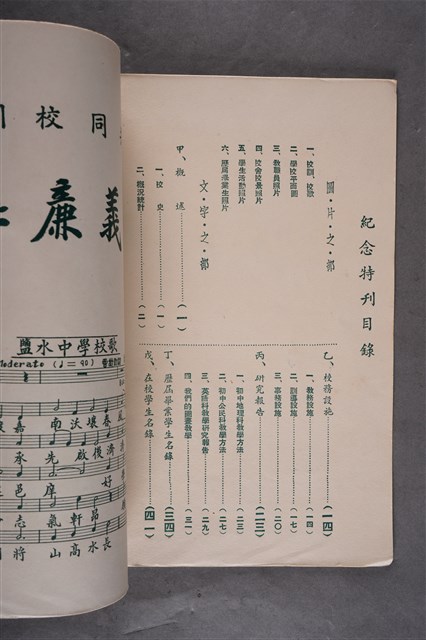 紀念特刊目錄
圖·片·之·部
一、校訓、校歌
二、學校平面圖
三、教職員照片
四、校舍校景照片
五、學生活動照片
六、歷屆畢業生照片
文·字·之·部
甲、概述……(一)
一、校史……(一)
二、概況統計……(二)
乙、校務設施……(一四)
一、教務設施……(一四)
二、訓導設施……(一七)
三、事務設施……(二〇)
丙、研究報告……(二三)
一、初中地理科教學方法……(二三)
二、初中公民科教學方法……(二七)
三、英語科教學研究報告……(二九)
四、我們的圖畫教學……(三一)
丁、歷屆畢業學生名錄……(三四)
戊、在校學生名錄……(四一)
校同
廉義
鹽水中學校歌
Moderato (♩=90)
嘉南沃壤春風
承先啟後濟
邑庠好
志氣軒昂
將山高水長